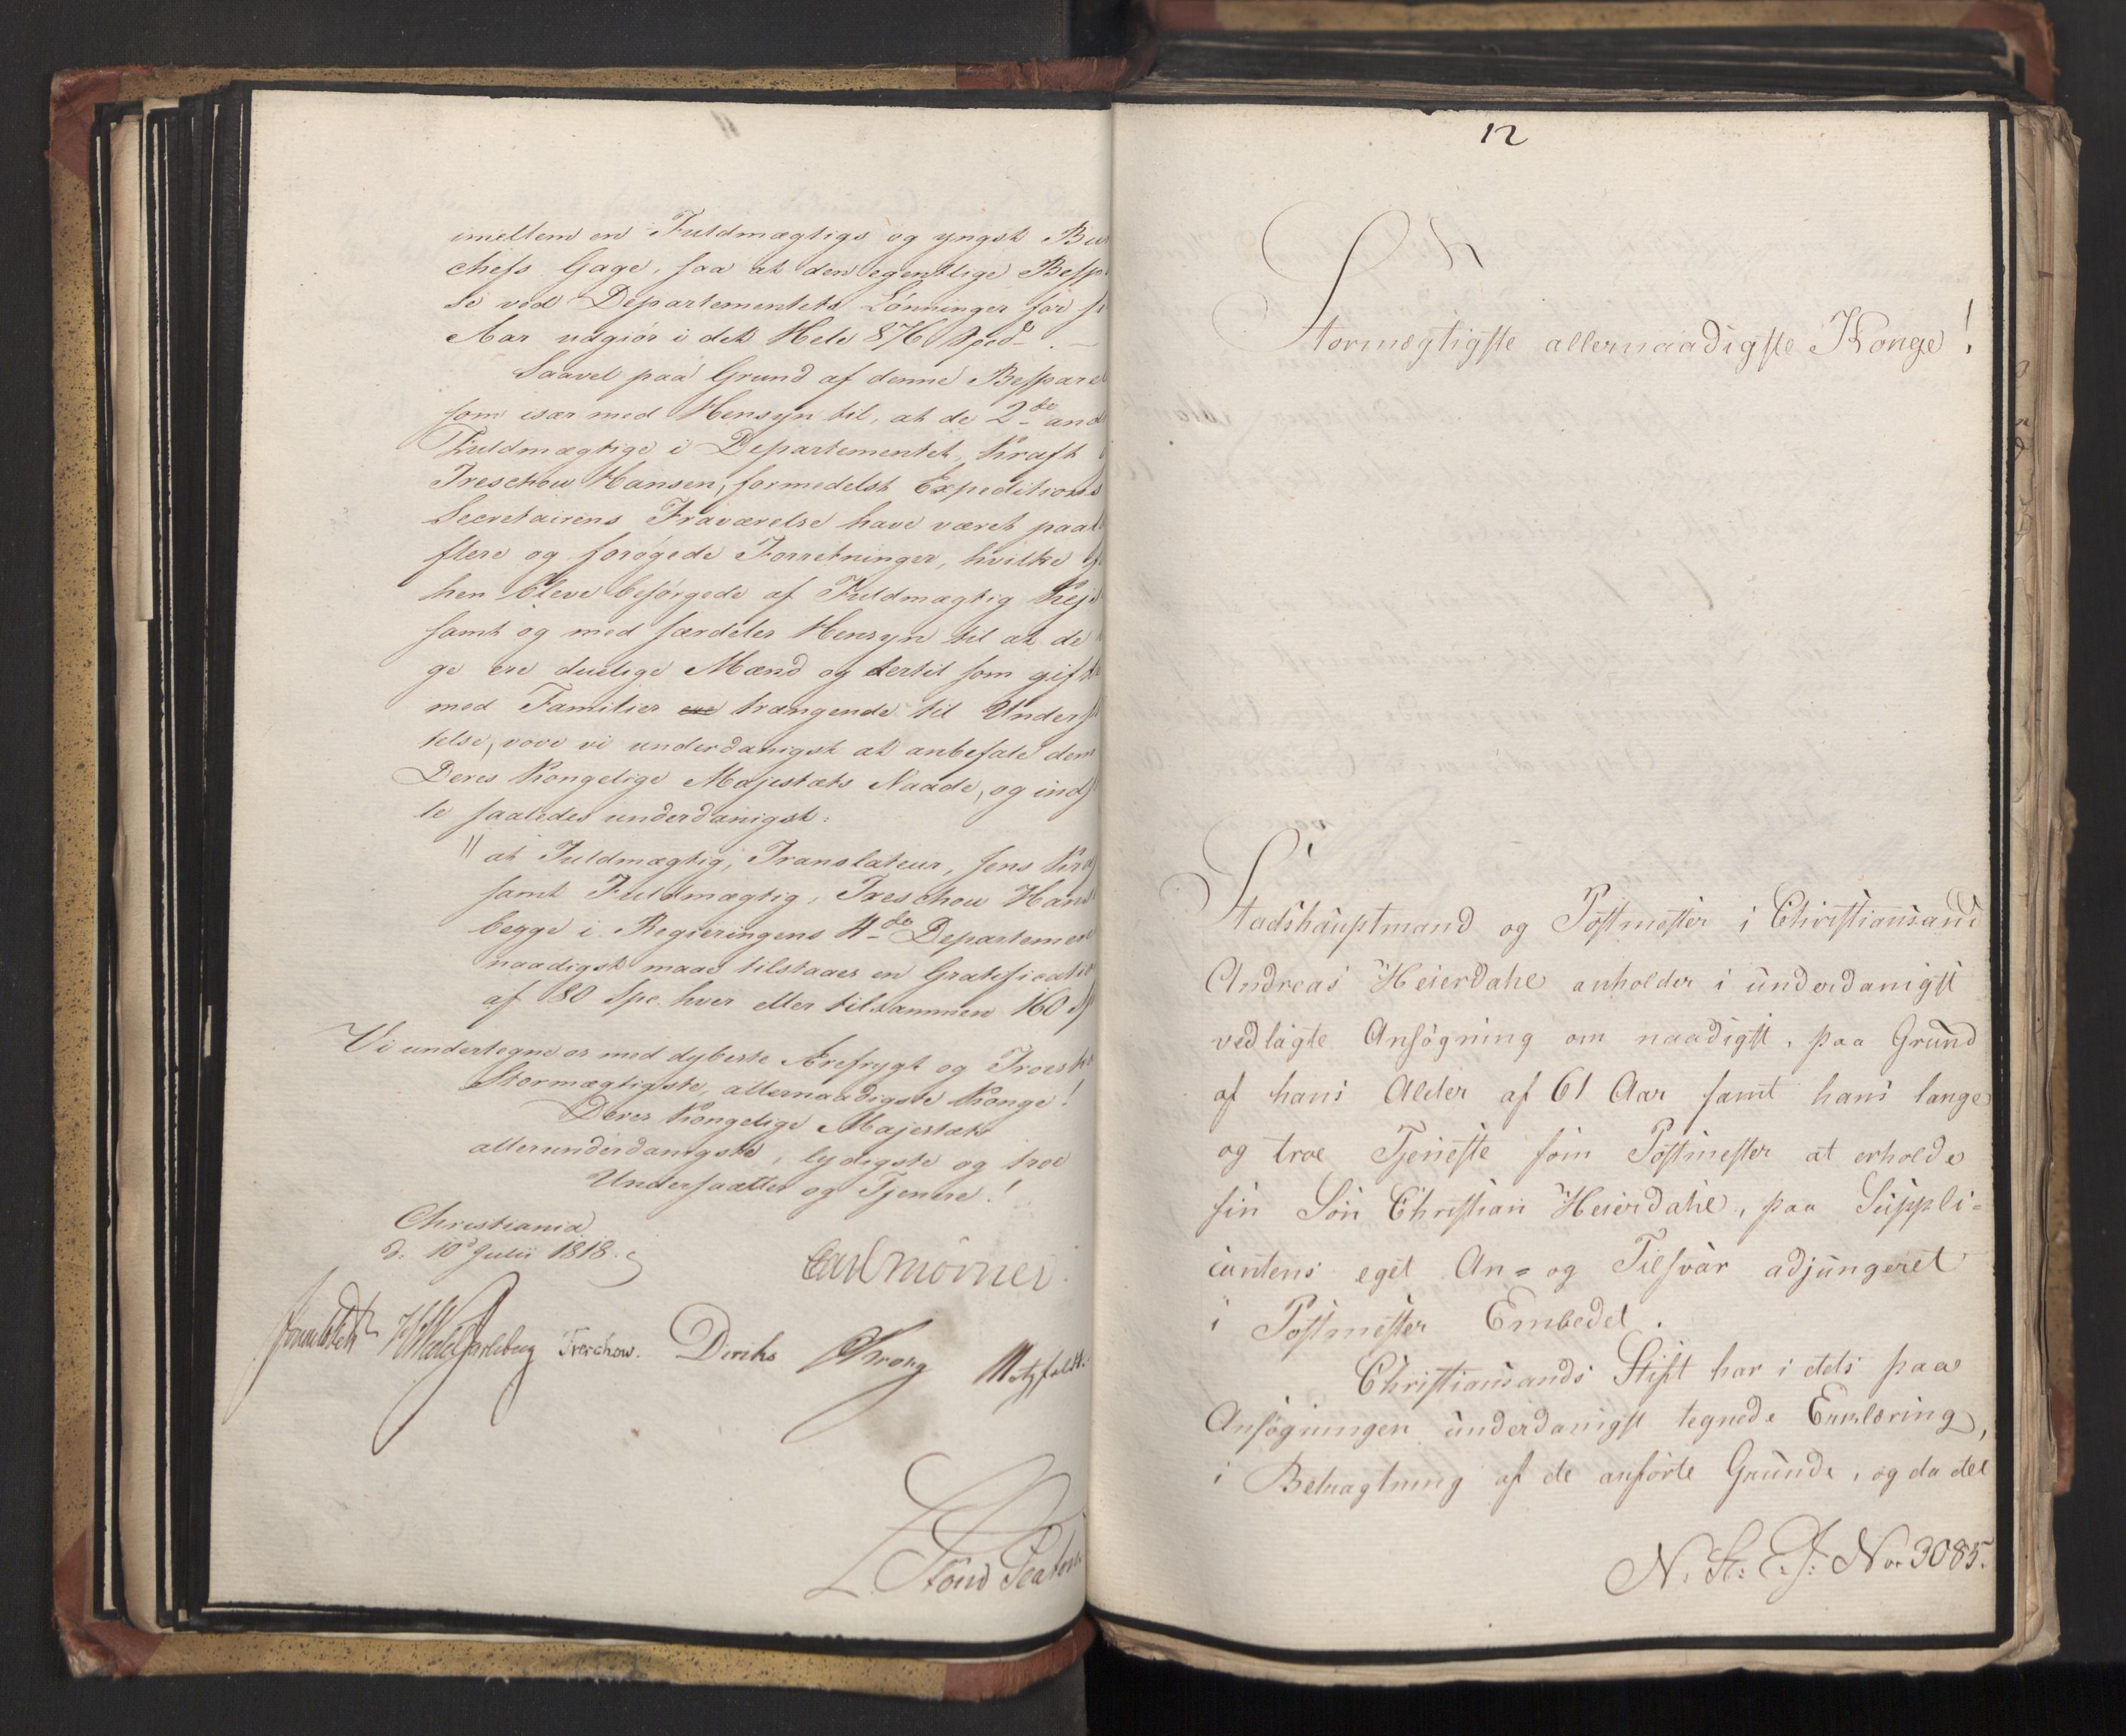 imellem en Fuldmægtigs og yngst Bur
chefs Gage, saa at den egentlige Bespa
se ved Departementets Lønninger for
Aar udgiør i det Hele 876 Spd. —
Saavel paa Grund af denne Besparel
som især med Hensyn til, at de 2de and
Fuldmægtige i Departementet, Kraft
Treschow Hansen, formedelst Expeditions
Secretairens Fraværelse have været paal
flere og forøgede Forretninger, hvilke
hen bleve besørgede af Fuldmægtig Kejs
samt og med særdeles Hensyn til at de
ge ere duelige Mænd og dertil som gifte
med Familier ere trængende til Unders
telse, vove vi underdanigst at anbefale dem
Deres Kongelige Majestæts Naade, og inds
le saaledes underdanigst:
"at Fuldmægtig, Translateur, Jens Kra
samt Fuldmægtig, Treschow Hans
begge i Regieringens 4de Departemen
naadigst maae tilstaaes en Gratification
af 80 Spc. hver eller tilsammen 160 Sp
Vi undertegne os med dybeste Ærefrygt og Troesk
Stormægtigste, allernaadigste Konge!
Deres Kongelige Majestæts
allerunderdanigste, lydigste og troe
Undersaatter og Tjenere!
Christiania
d: 10d Julii 1818.
Carl Mörner.
Sommerhielm HWedelJarlsberg Treschow. Diriks CKrohg Motzfeldt.
12
Stormægtigste allernaadigste Konge!
Stadshauptmand og Postmester i Christiansand
Andreas Heierdahl anholder i underdanigst
vedlagte Ansøgning om naadigst, paa Grund
af hans Alder af 61 Aar samt hans lange
og troe Tjeneste som Postmester at erholde
sin Søn Christian Heierdahl, paa Suppli-
cantens eget An- og Tilsvar adjungeret
i Postmester Embedet.
Christiansands Stift har i dets paa
Ansøgningen underdanigst tegnede Erklæring,
i Betragtning af de anførte Grunde, og da det
N. St: E. J: No. 3085.